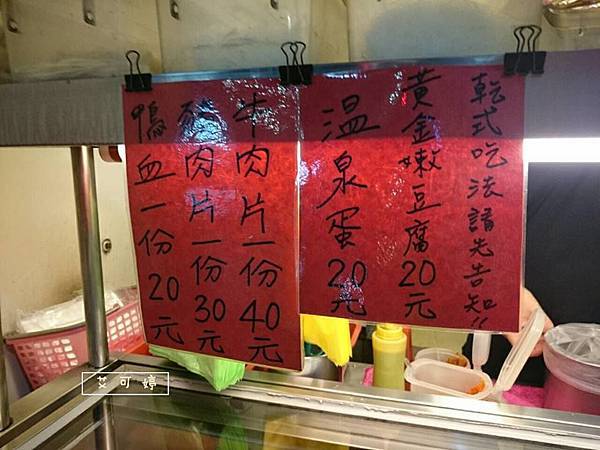 乾式吃法請先告知!!
黃金嫩豆腐20元
溫泉蛋20元
牛肉片一份40元
豬肉片一份30元
鴨血一份20元
艾可婷